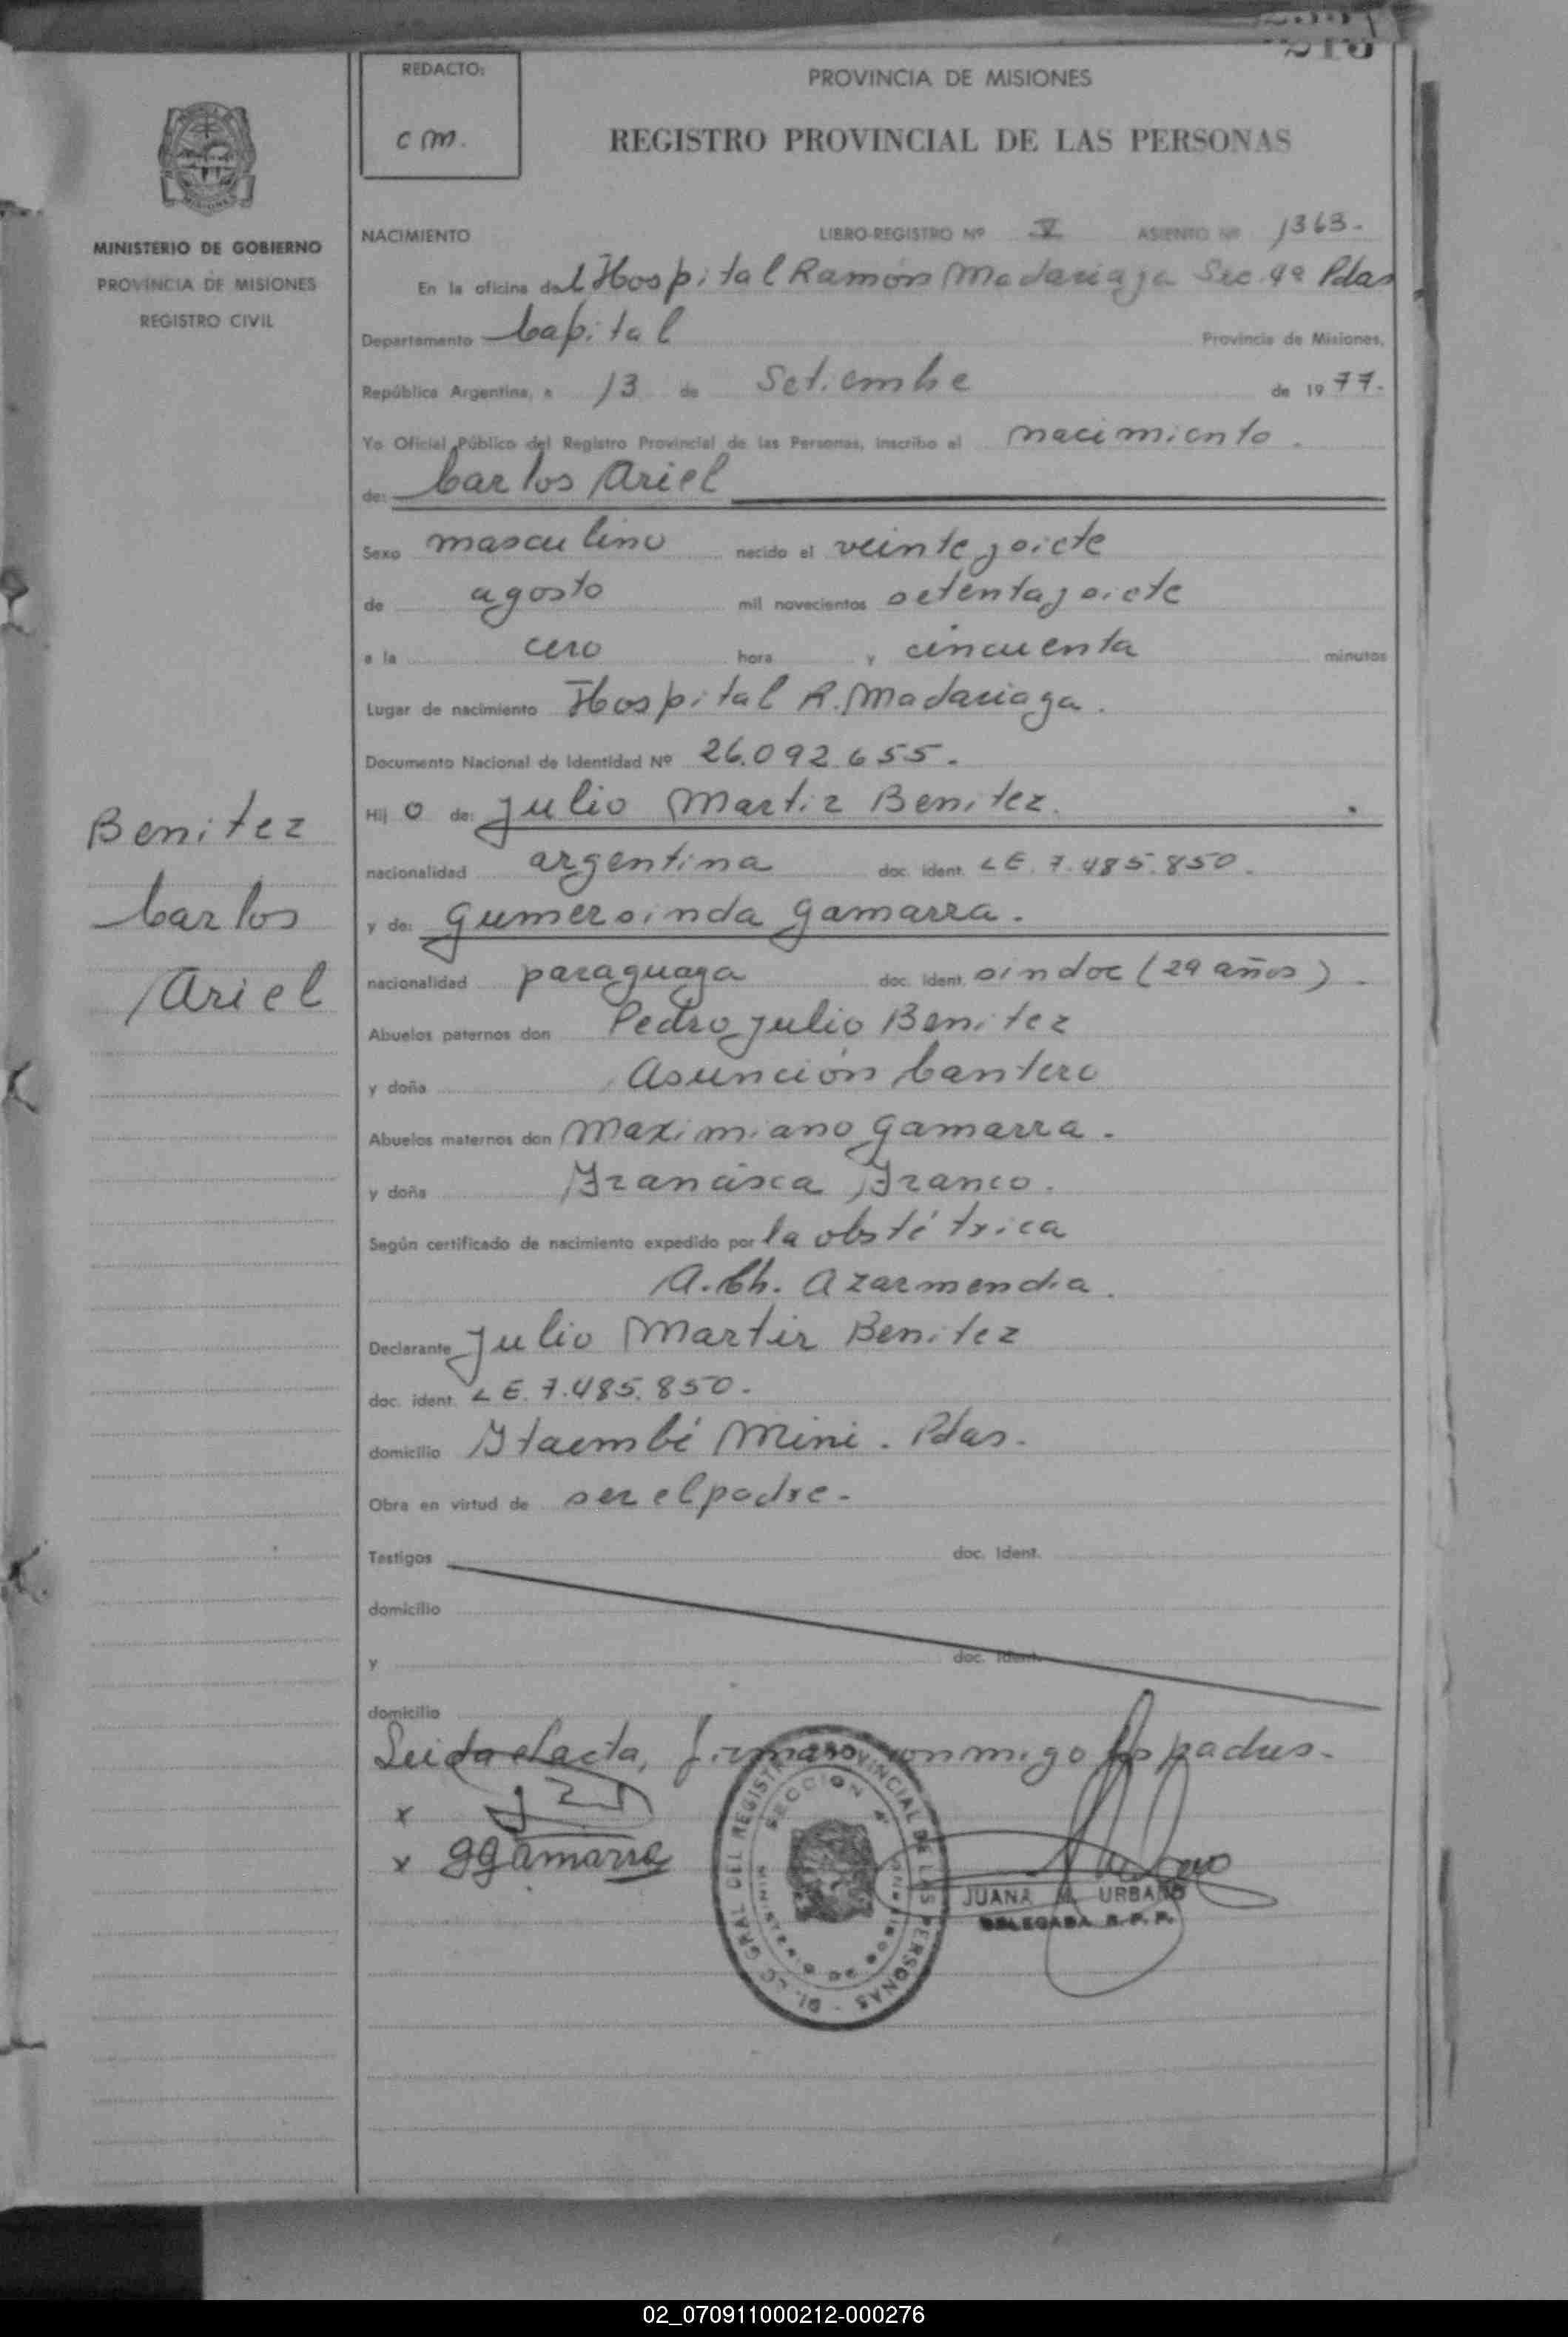 REDACTO:
C M.
PROVINCIA DE MISIONES
REGISTRO PROVINCIAL DE LAS PERSONAS
MINISTERIO DE GOBIERNO
PROVINCIA DE MISIONES
REGISTRO CIVIL
NACIMIENTO LIBRO-REGISTRO Nº V ASIENTO Nº 1363.-
En la oficina del Hospital Ramón Madariaga Sec. 4ª Pdas
Departamento Capital Provincia de Misiones,
República Argentina, a 13 de Setiembre de 1977.-
Yo Oficial Público del Registro Provincial de las Personas, inscribo el nacimiento.
de: Carlos Ariel
Sexo masculino nacido el veinte y siete
de agosto mil novecientos setenta y siete
a la cero hora y cincuenta minutos
Lugar de nacimiento Hospital R. Madariaga.
Documento Nacional de Identidad Nº 26.092.655.-
Hijo de: Julio Martir Benitez.
nacionalidad argentina doc. ident. LE. 7.485.850.
y de: Gumersinda Gamarra.
nacionalidad paraguaya doc. ident. sin doc (29 años).-
Abuelos paternos don Pedro Julio Benitez
y doña Asunción Cantero
Abuelos maternos don Maximiano Gamarra.-
y doña Francisca Franco.
Según certificado de nacimiento expedido por la obstétrica
A. Ch. Azarmendia.
Declarante Julio Martir Benitez
doc. ident. LE. 7.485.850.
domicilio Itaembé Mini. Pdas.
Obra en virtud de ser el padre.-
Testigos doc. ident.
domicilio
y doc. ident.
domicilio
Leida el acta, firman conmigo los padres.-
x
x GGamarra
Benitez
Carlos
Ariel
DIREC. GRAL DEL REGISTRO PROVINCIAL DE LAS PERSONAS
SECCION 4ª
JUANA M. URBANO
DELEGADA R. P. P.
02_070911000212-000276